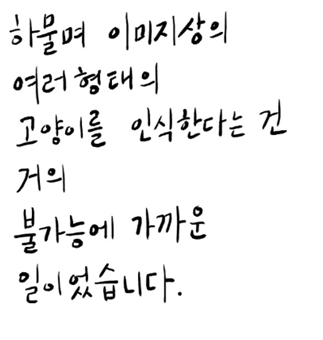 하물며 이미지상의
여러형태의
고양이를 인식한다는 건
거의
불가능에 가까운
일이었습니다.